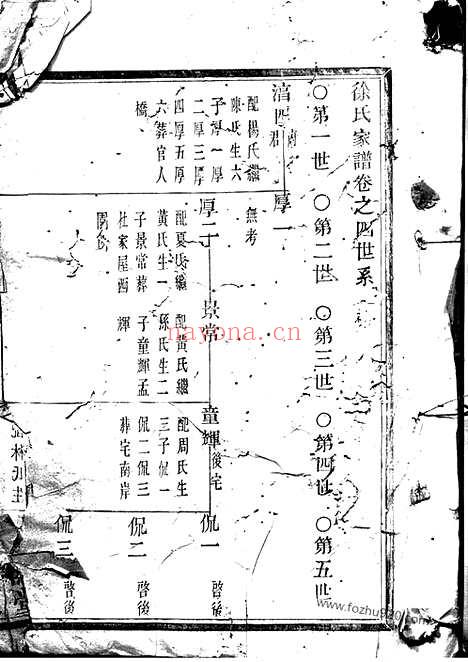 徐氏家譜卷之四世系
○第一世 ○第二世 ○第三世 ○第四世 ○第五世
淯四
厚一
無考
配楊氏繼
陳氏生六
子厚一厚
二厚三厚
四厚五厚
六葬官人
橋
厚二
配夏氏繼
黃氏生一
子景常葬
杜家屋西
園
景常
配黃氏繼
孫氏生二
子童輝孟
輝
童輝
後宅
配周氏生
三子侃一
侃二侃三
葬宅南岸
侃一
啓後
侃二
啓後
侃三
啓後
nayona.cn
www.fozhu920.com